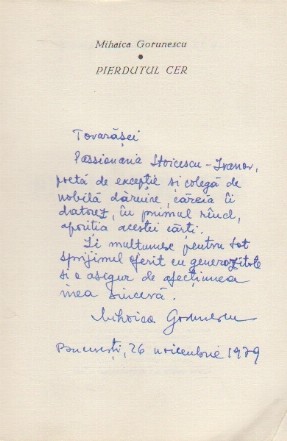 Mihaica Gorunescu
PIERDUTUL CER
Tovarășei
Passionaria Stoicescu-Ivanov,
poetă de excepție și colegă de
nobilă dăruire, căreia îi
datorez, în primul rînd,
apariția acestei cărți.
Îi mulțumesc pentru tot
sprijinul oferit cu generozitate
și o asigur de afecțiunea
mea sinceră.
Mihaica Gorunescu
București, 26 noiembrie 1979